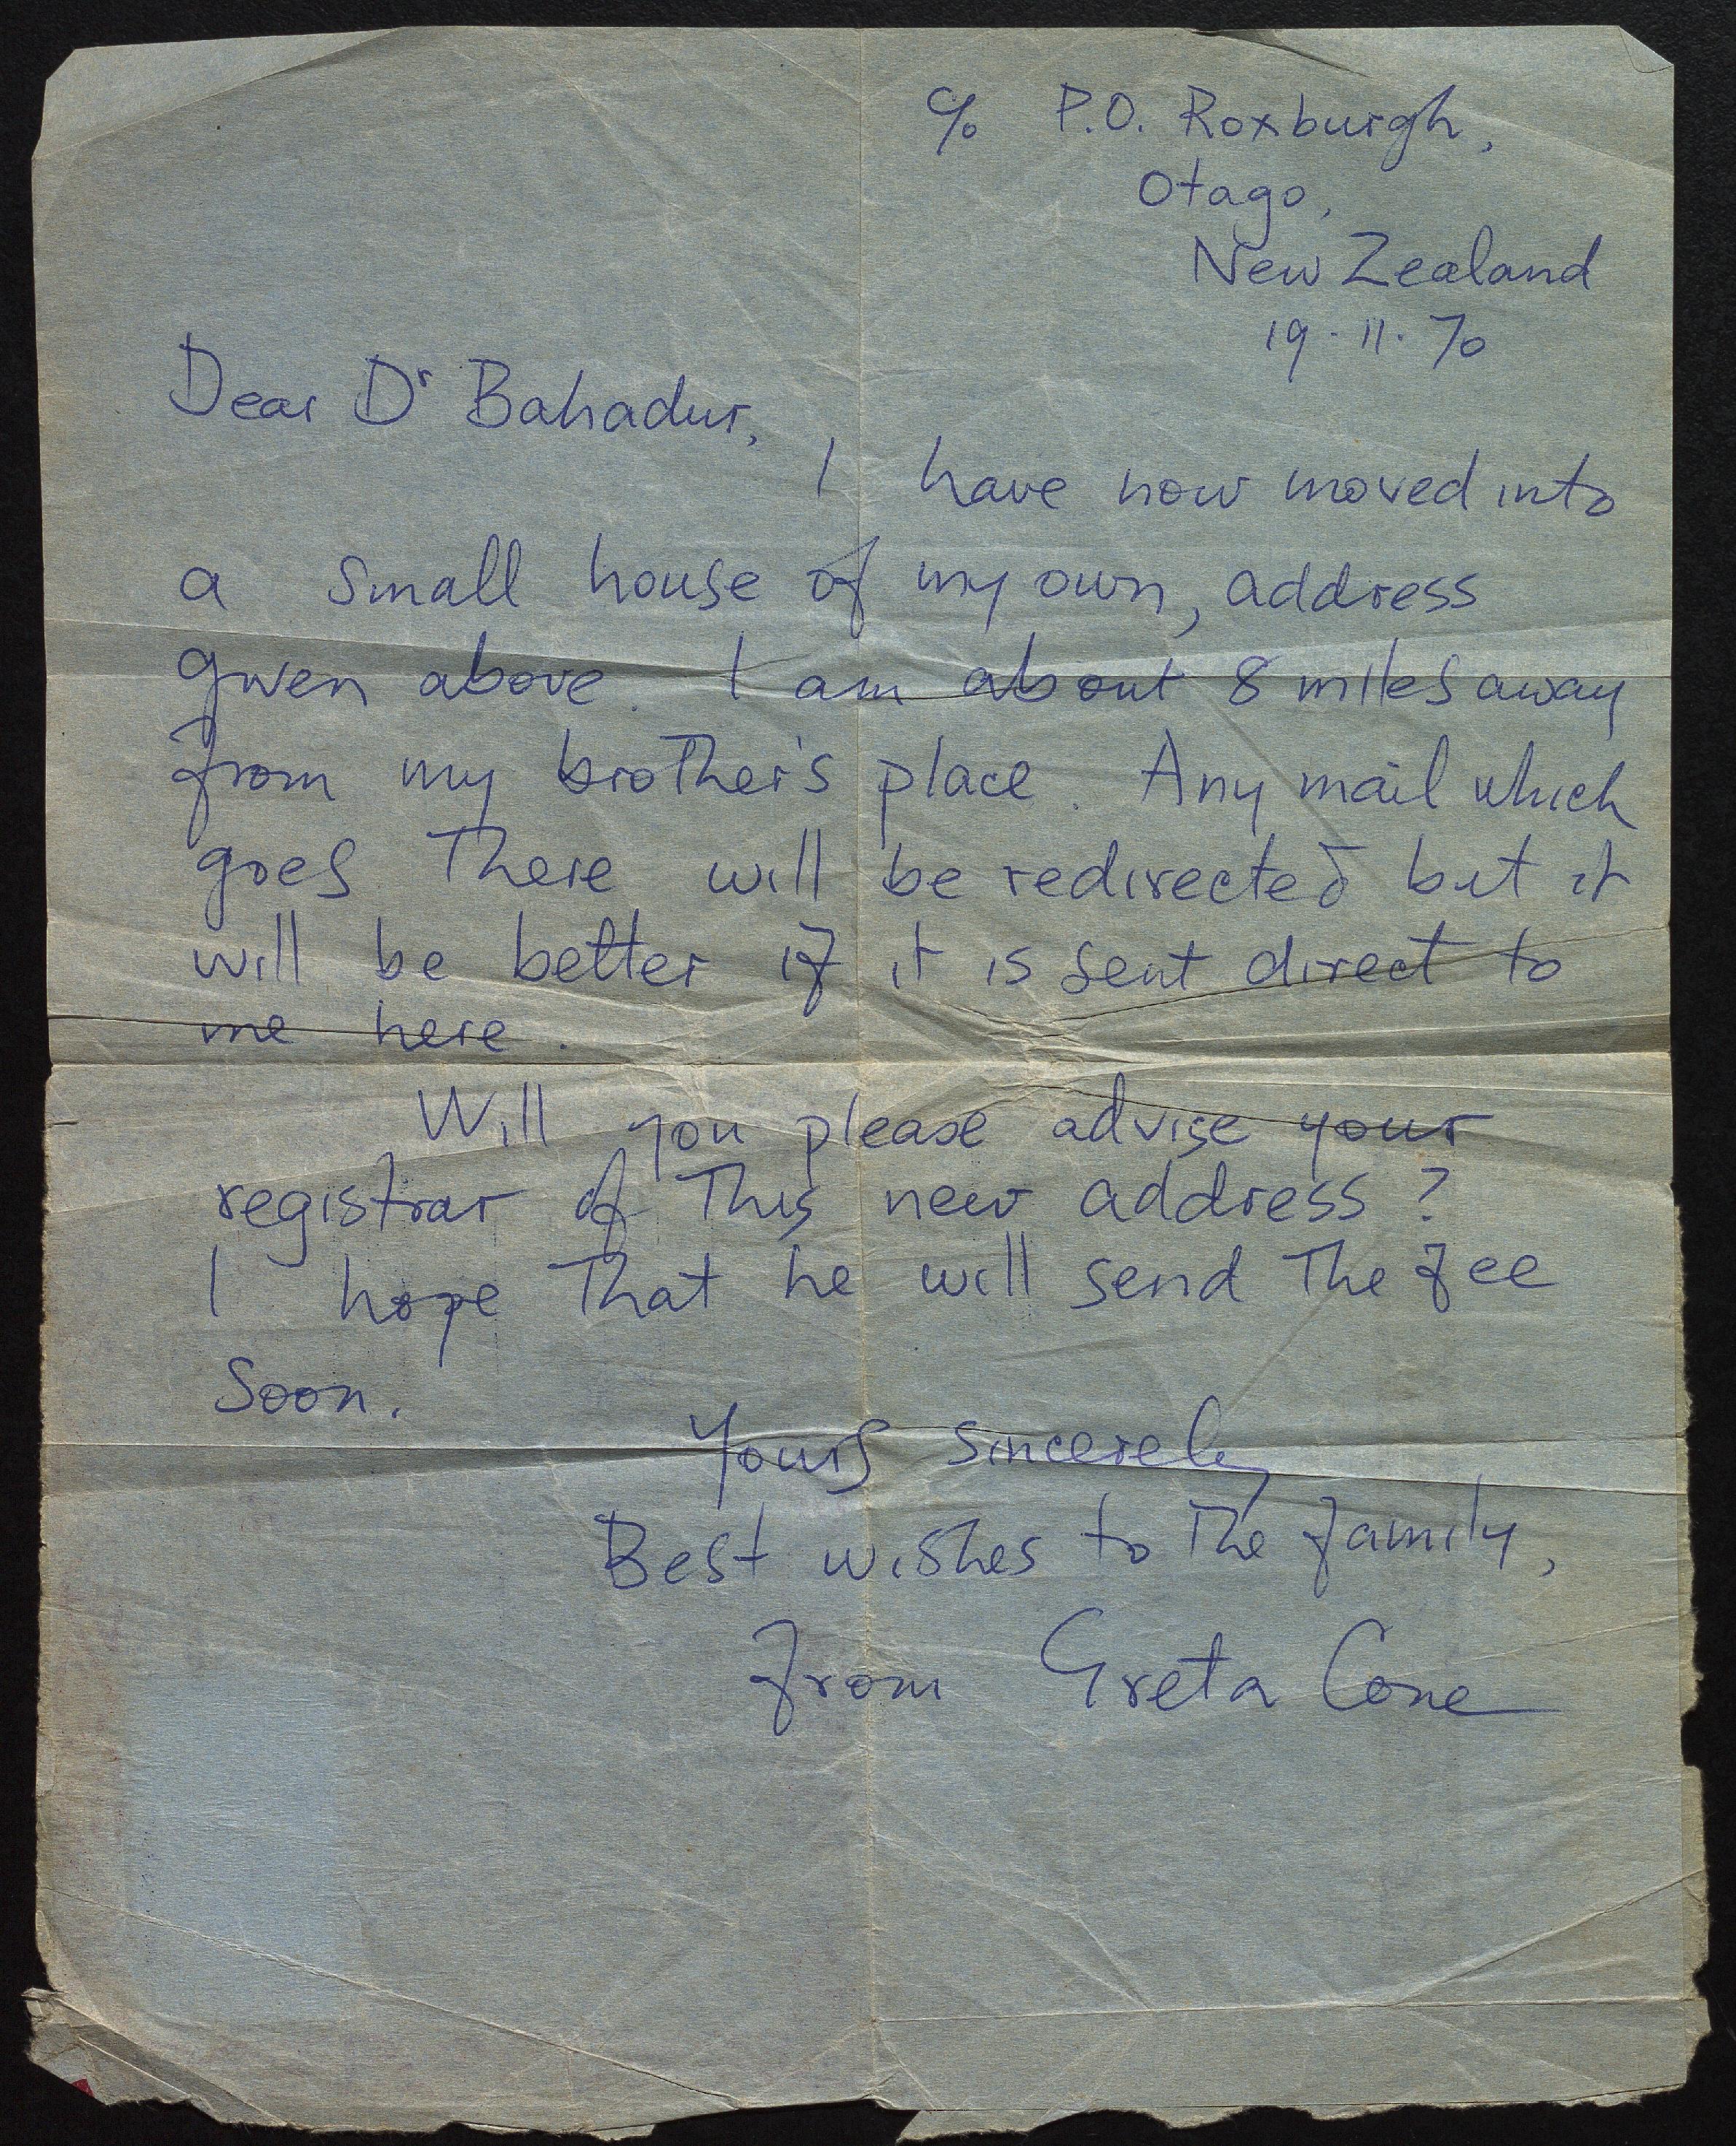 c/o P.O. Roxburgh,
Otago,
New Zealand
19.11.70
Dear Dr Bahadur,
I have now moved into
a small house of my own, address
given above. I am about 8 miles away
from my brother's place. Any mail which
goes there will be redirected but it
will be better if it is sent direct to
me here.
Will you please advise your
registrar of this new address?
I hope that he will send the fee
soon.
Yours sincerely
Best wishes to the family,
from Greta Cone